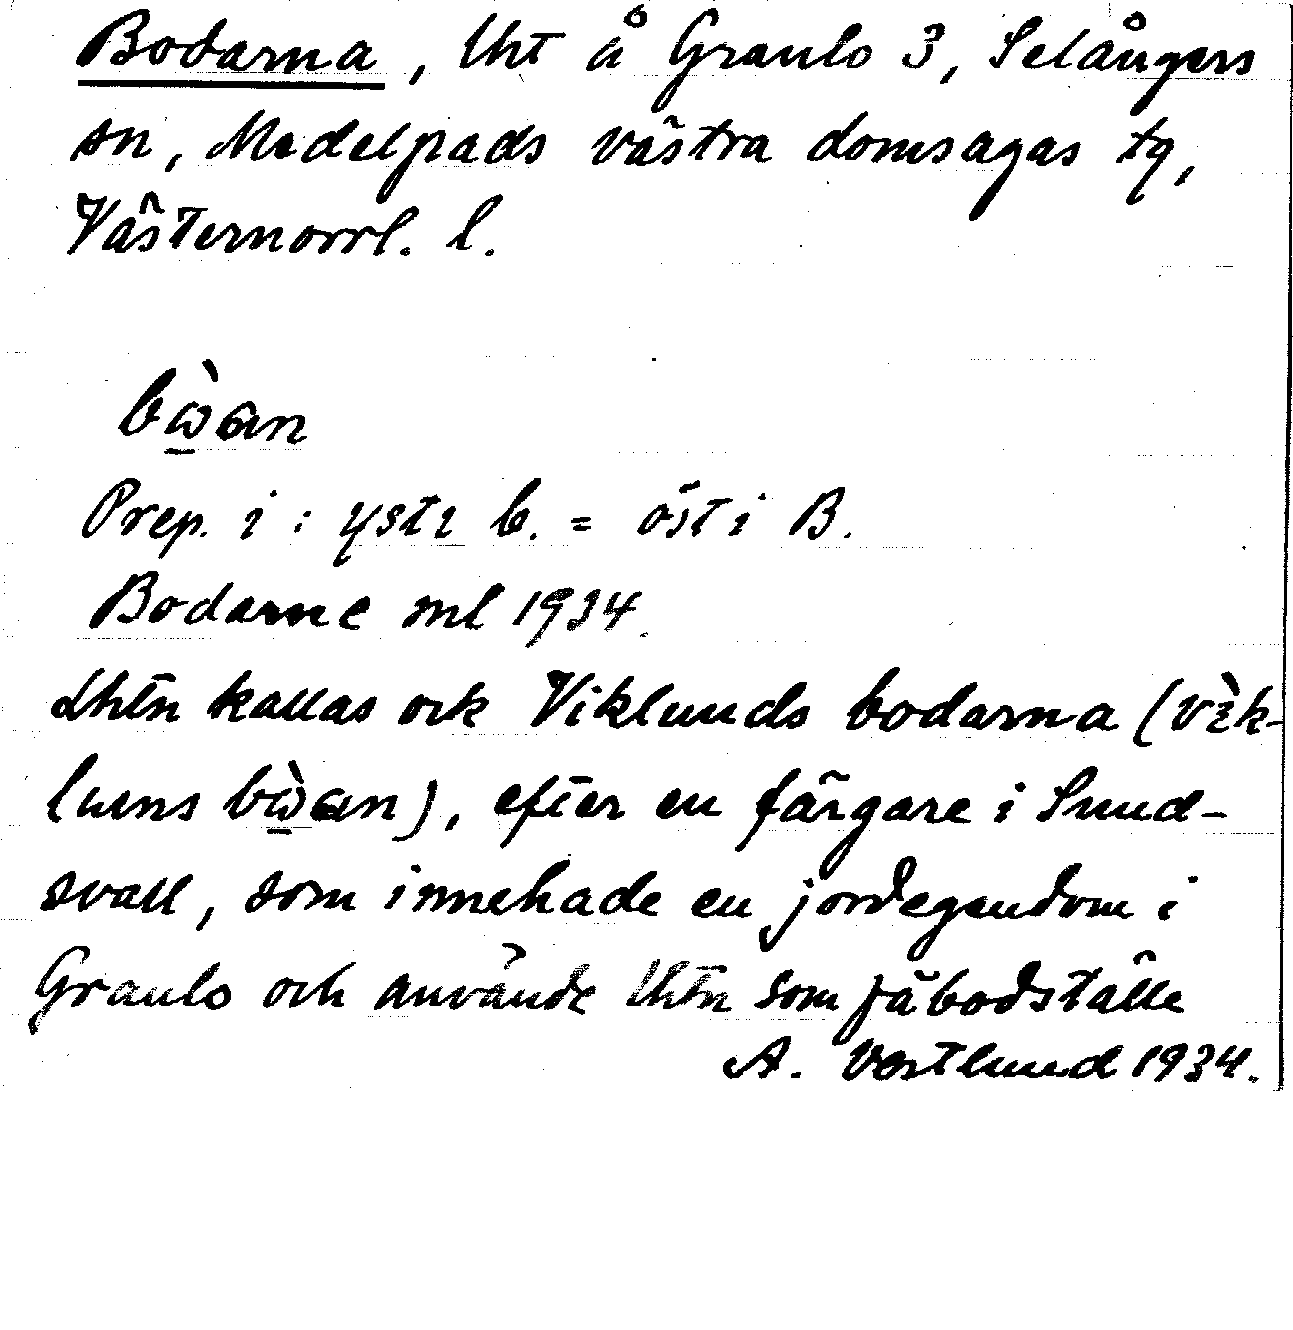 Bodarna, lht å Granlo 3, Selångers
sn, Medelpads västra domsagas tg,
Västernorrl. l.
bὼ̲an
Prep. i : ystı b. = öst i B.
Bodarne ml 1934.
Lhtn kallas ock Viklunds bodarna (vìk-
luns bὼ̲an), efter en färgare i Sund-
svall, som innehade en jordegendom i
Granlo och använde lhtn som fäbodställe
A. Vestlund 1934.